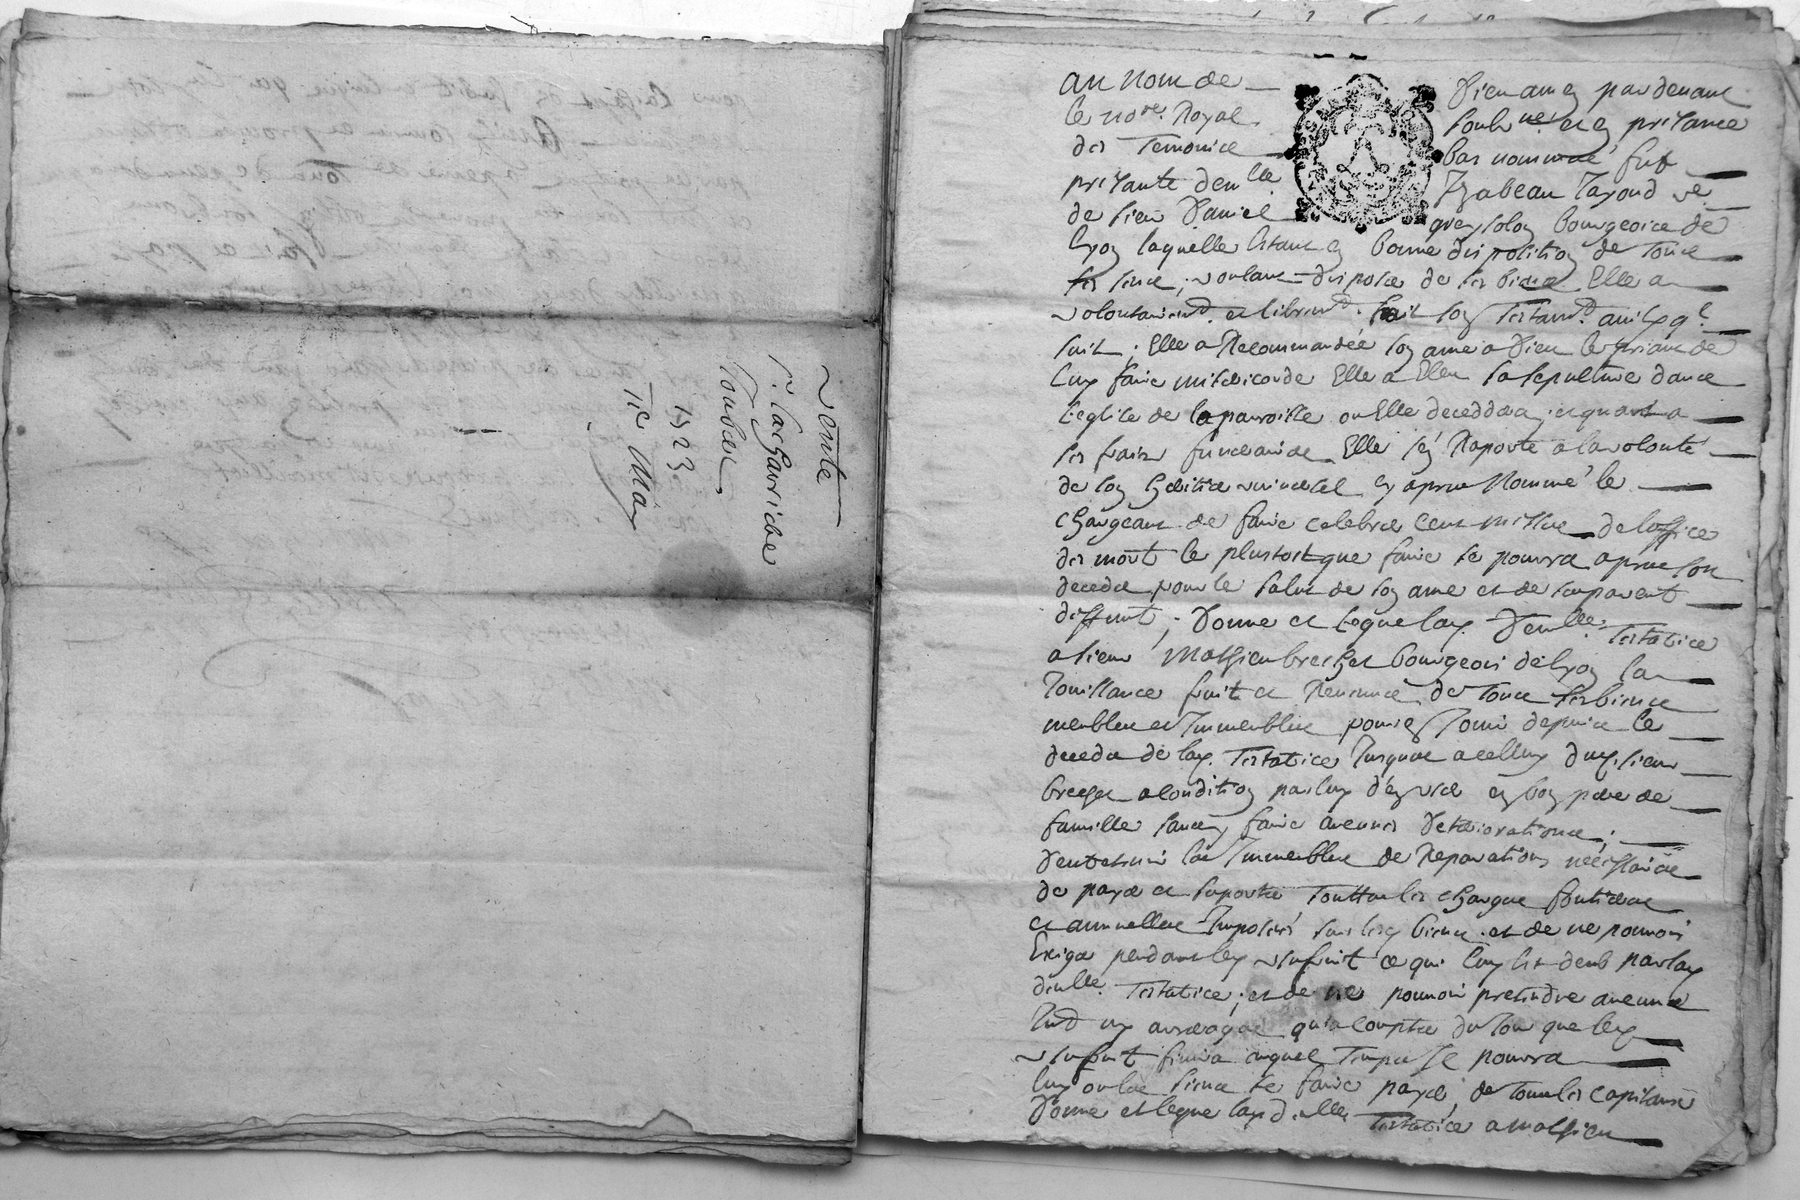 Vente
Sr. lachavriche
Joubert
1723
Tie May
au nom de Dieu amen pardevant
le nore. Royal soubne. et en presance
des Temoinct bas nommné fust
presante demlle. Izabeau Tayoud ve.
de sieur Daniel greysolon bourgeoice de
lyon laquelle estant en bonne disposition de tous
ses sens, voulant disposer de ses biens Elle a
volontairemt. et librement. fait son Testamt. ainsy q.
suit; Elle a Recommandée son ame a Dieu le priant de
luy faire misericorde Elle a Eleu sa sepulture dans
l'eglise de la parroisse ou Elle deceddera, et quant a
ses frais funeraires Elle s'en Raporte a la volonté
de son heritier universel cy apres Nommé le
chargeant de faire celebrer cent messes de loffice
des mort le plustost que faire se pourra apres son
decedz pour le salut de son ame et de ses parents
deffunt; Donne et legue lad. Demlle. Testatrice
a sieur Mathieu brechet bourgeois de lyon la
Jouissance fruit et Revenus de tous ses biens
meubles et Immeubles pour en Jouir depuis le
decedz de lad. Testatrice Jusques a celluy dud. sieur
brechet a condition par luy d'en user en bon pere de
famille sans y faire aucunes Deteriorations;
D'entretenir les Immeubles de Reparations nécéssaires
de payer et suporter Touttes les charges fontieres
et annuelles Imposées sur lesd. biens. et de ne pouvoir
Exiger pendant led. usufruit ce qui luy est deub par lad.
demlle. Testatrice; et de ne pouvoir pretendre aucuns
Intd. ny arrerages qu'a compter du Jour que led.
usufruit finira auquel Temps Il se pourra
luy ou les siens se faire payer de tous les capitaux
Donne et legue lad. dlle. Testatrice a mathieu